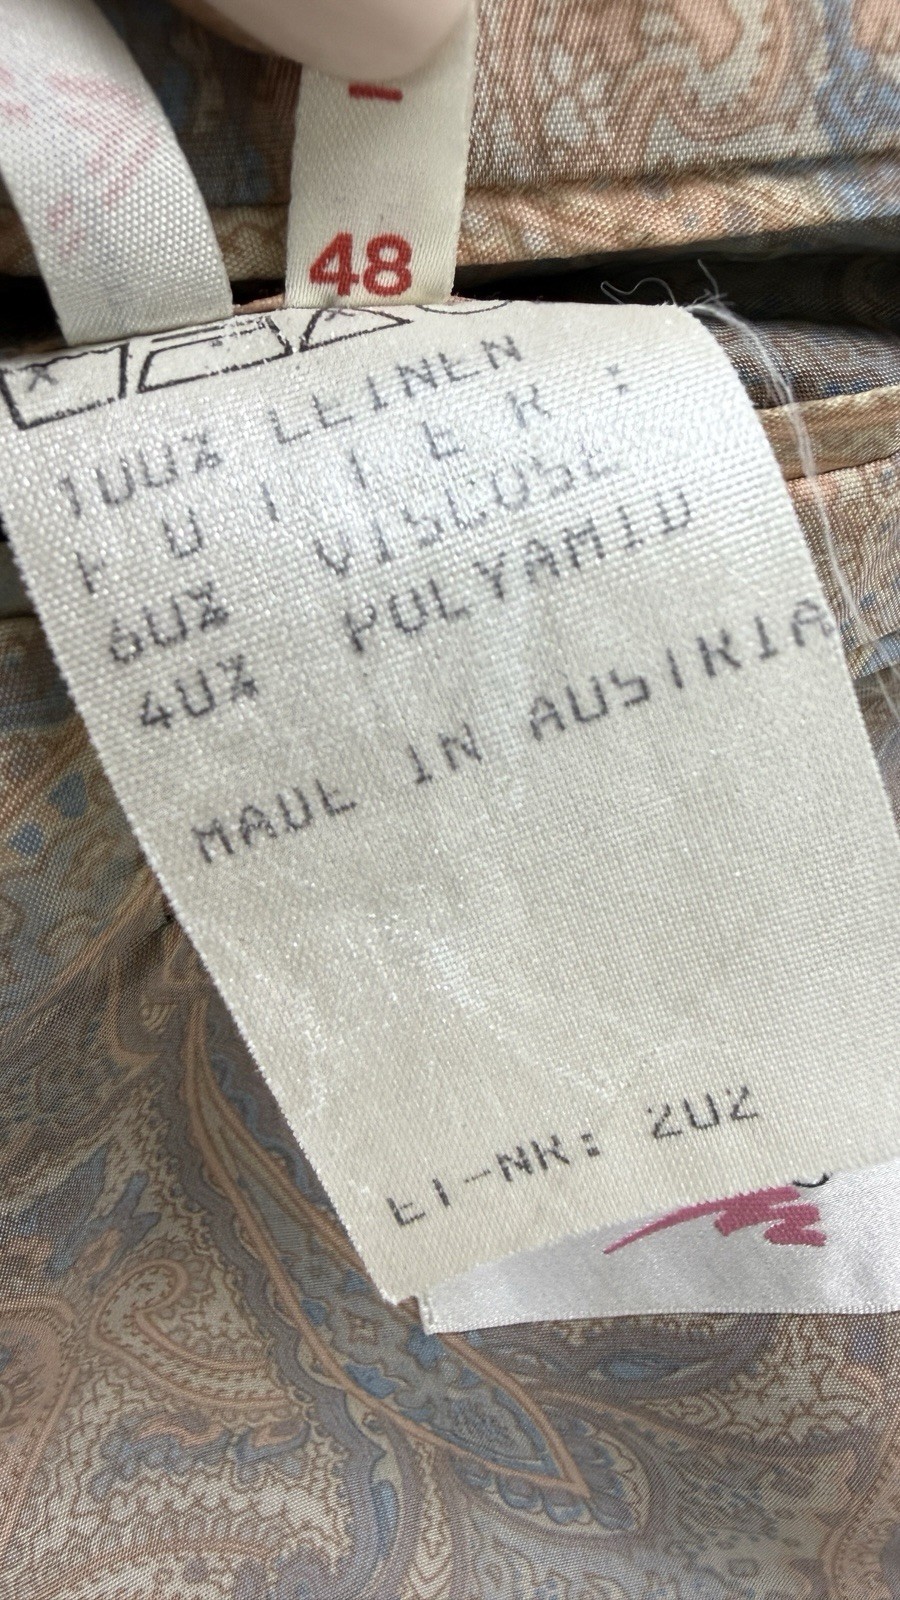 48
100% LEINEN
FUTTER:
60% VISCOSE
40% POLYAMID
MADE IN AUSTRIA
ET-NR: 202